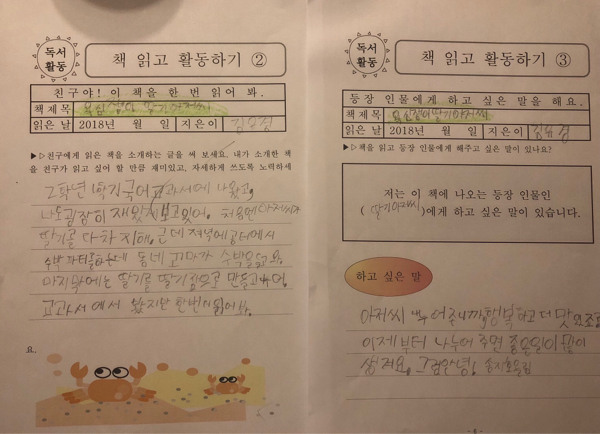 독서
활동
책 읽고 활동하기 ②
친구야! 이 책을 한 번 읽어 봐.
책 제목 욕심쟁이 딸기아저씨
읽은 날 2018년 월 일 지은이 김유경
▶▷친구에게 읽은 책을 소개하는 글을 써 보세요. 내가 소개한 책
을 친구가 읽고 싶어 할 만큼 재미있고, 자세하게 쓰도록 노력하세
2학년 1학기 국어 교과서에 나왔고,
나도 굉장히 재밌게 보고 있어. 처음엔 아저씨가
딸기를 다 차지해. 근데 저녁에 공터에서
수박 파티를 하는데 동네 꼬마가 수박을 줬고요.
마지막에는 딸기를 딸기잼으로 만들고
교과서에서 봤지만 한번 읽어봐.
요.
독서
활동
책 읽고 활동하기 ③
등장 인물에게 하고 싶은 말을 해요.
책 제목 욕심쟁이 딸기아저씨
읽은 날 2018년 월 일 지은이 김유경
▶▷책을 읽고 등장 인물에게 해주고 싶은 말이 있나요?
저는 이 책에 나오는 등장 인물인
( 딸기아저씨 )에게 하고 싶은 말이 있습니다.
하고 싶은 말
아저씨 나누어 주니까, 행복하고 더 맛있죠
이제부터 나누어 주면 좋은 일이 많이
생겨요. 그럼 안녕!